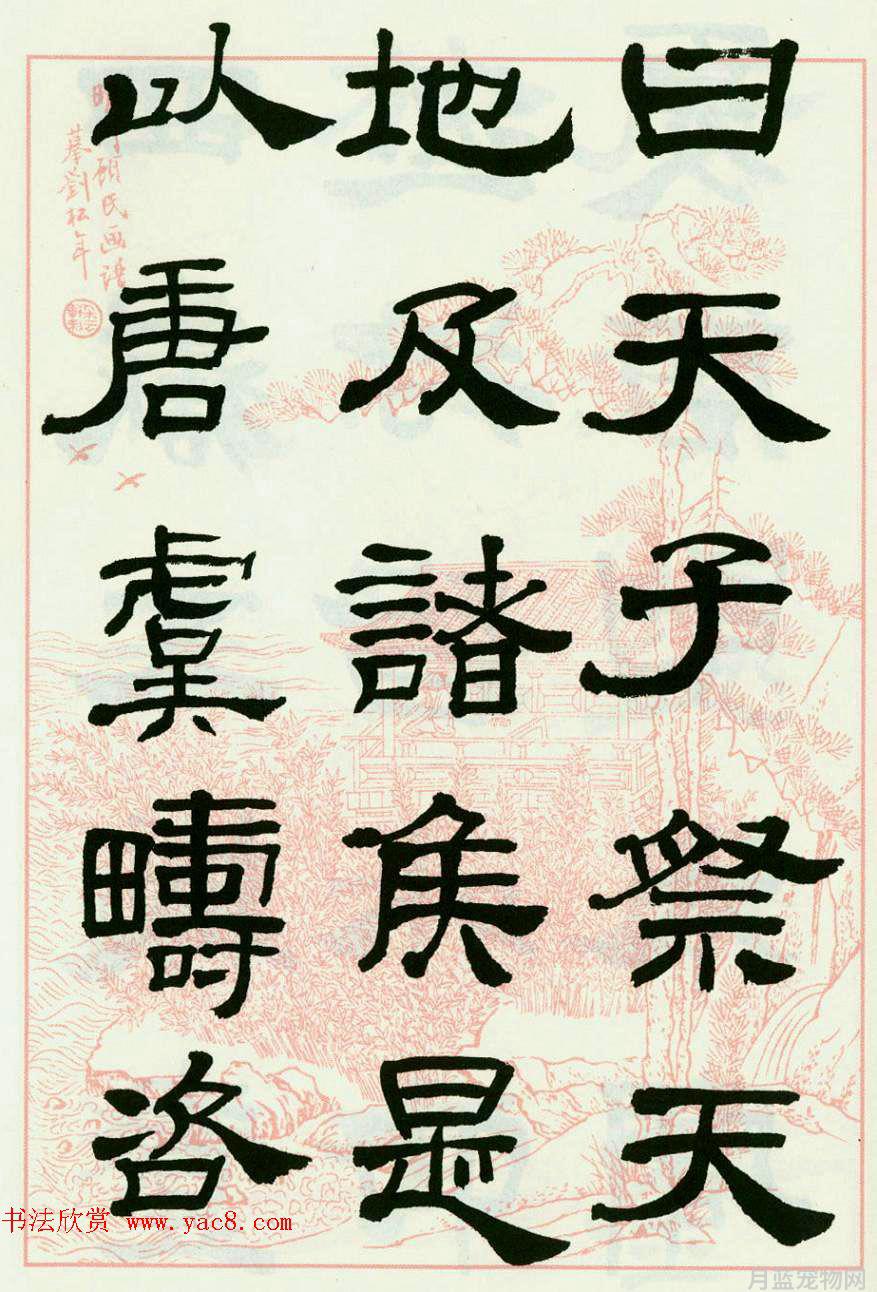 曰天子祭天
地及諸侯是
以唐虞疇咨
顧氏画譜
摹劉松年
书法欣赏 www.yac8.com
月蓝宠物网